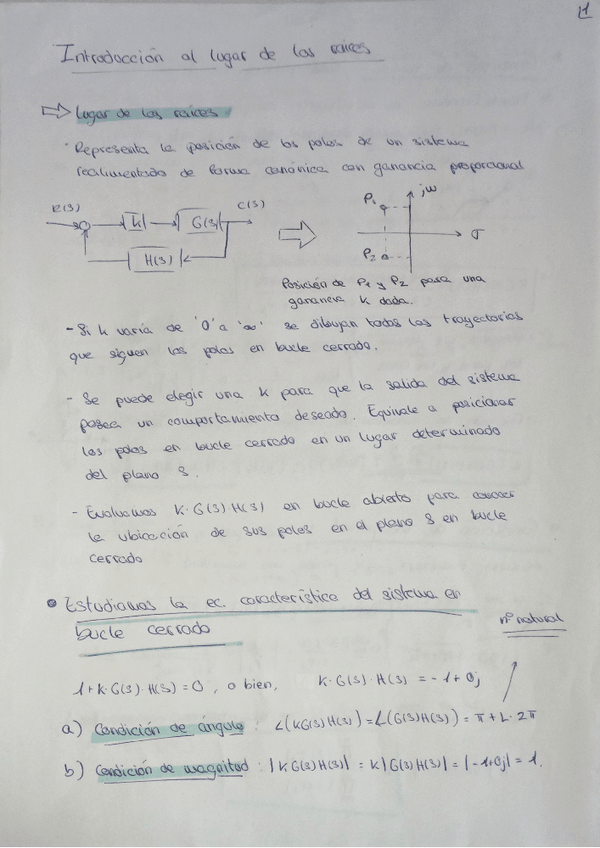 1
Introducción al lugar de las raíces
⇒ Lugar de las raíces
· Representa la posición de los polos de un sistema
realimentado de forma canónica con ganancia proporcional
R(s) K G(s) C(s)
H(s)
P₁ jω
σ
P₂
Posición de P₁ y P₂ para una
ganancia K dada.
- Si K varía de '0' a '∞' se dibujan todas las trayectorias
que siguen los polos en bucle cerrado.
- Se puede elegir una K para que la salida del sistema
posea un comportamiento deseado. Equivale a posicionar
los polos en bucle cerrado en un lugar determinado
del plano S.
- Evaluamos K·G(s)·H(s) en bucle abierto para conocer
la ubicación de sus polos en el plano S en bucle
cerrado
• Estudiamos la ec. característica del sistema en
bucle cerrado
nº natural
1+K·G(s)·H(s)=0, o bien, K·G(s)·H(s) = -1+0j
a) Condición de ángulo: ∠(KG(s)H(s))=∠(G(s)H(s))= π+L·2π
b) Condición de magnitud: |KG(s)H(s)| = K|G(s)H(s)| = |-1+0j| = 1.